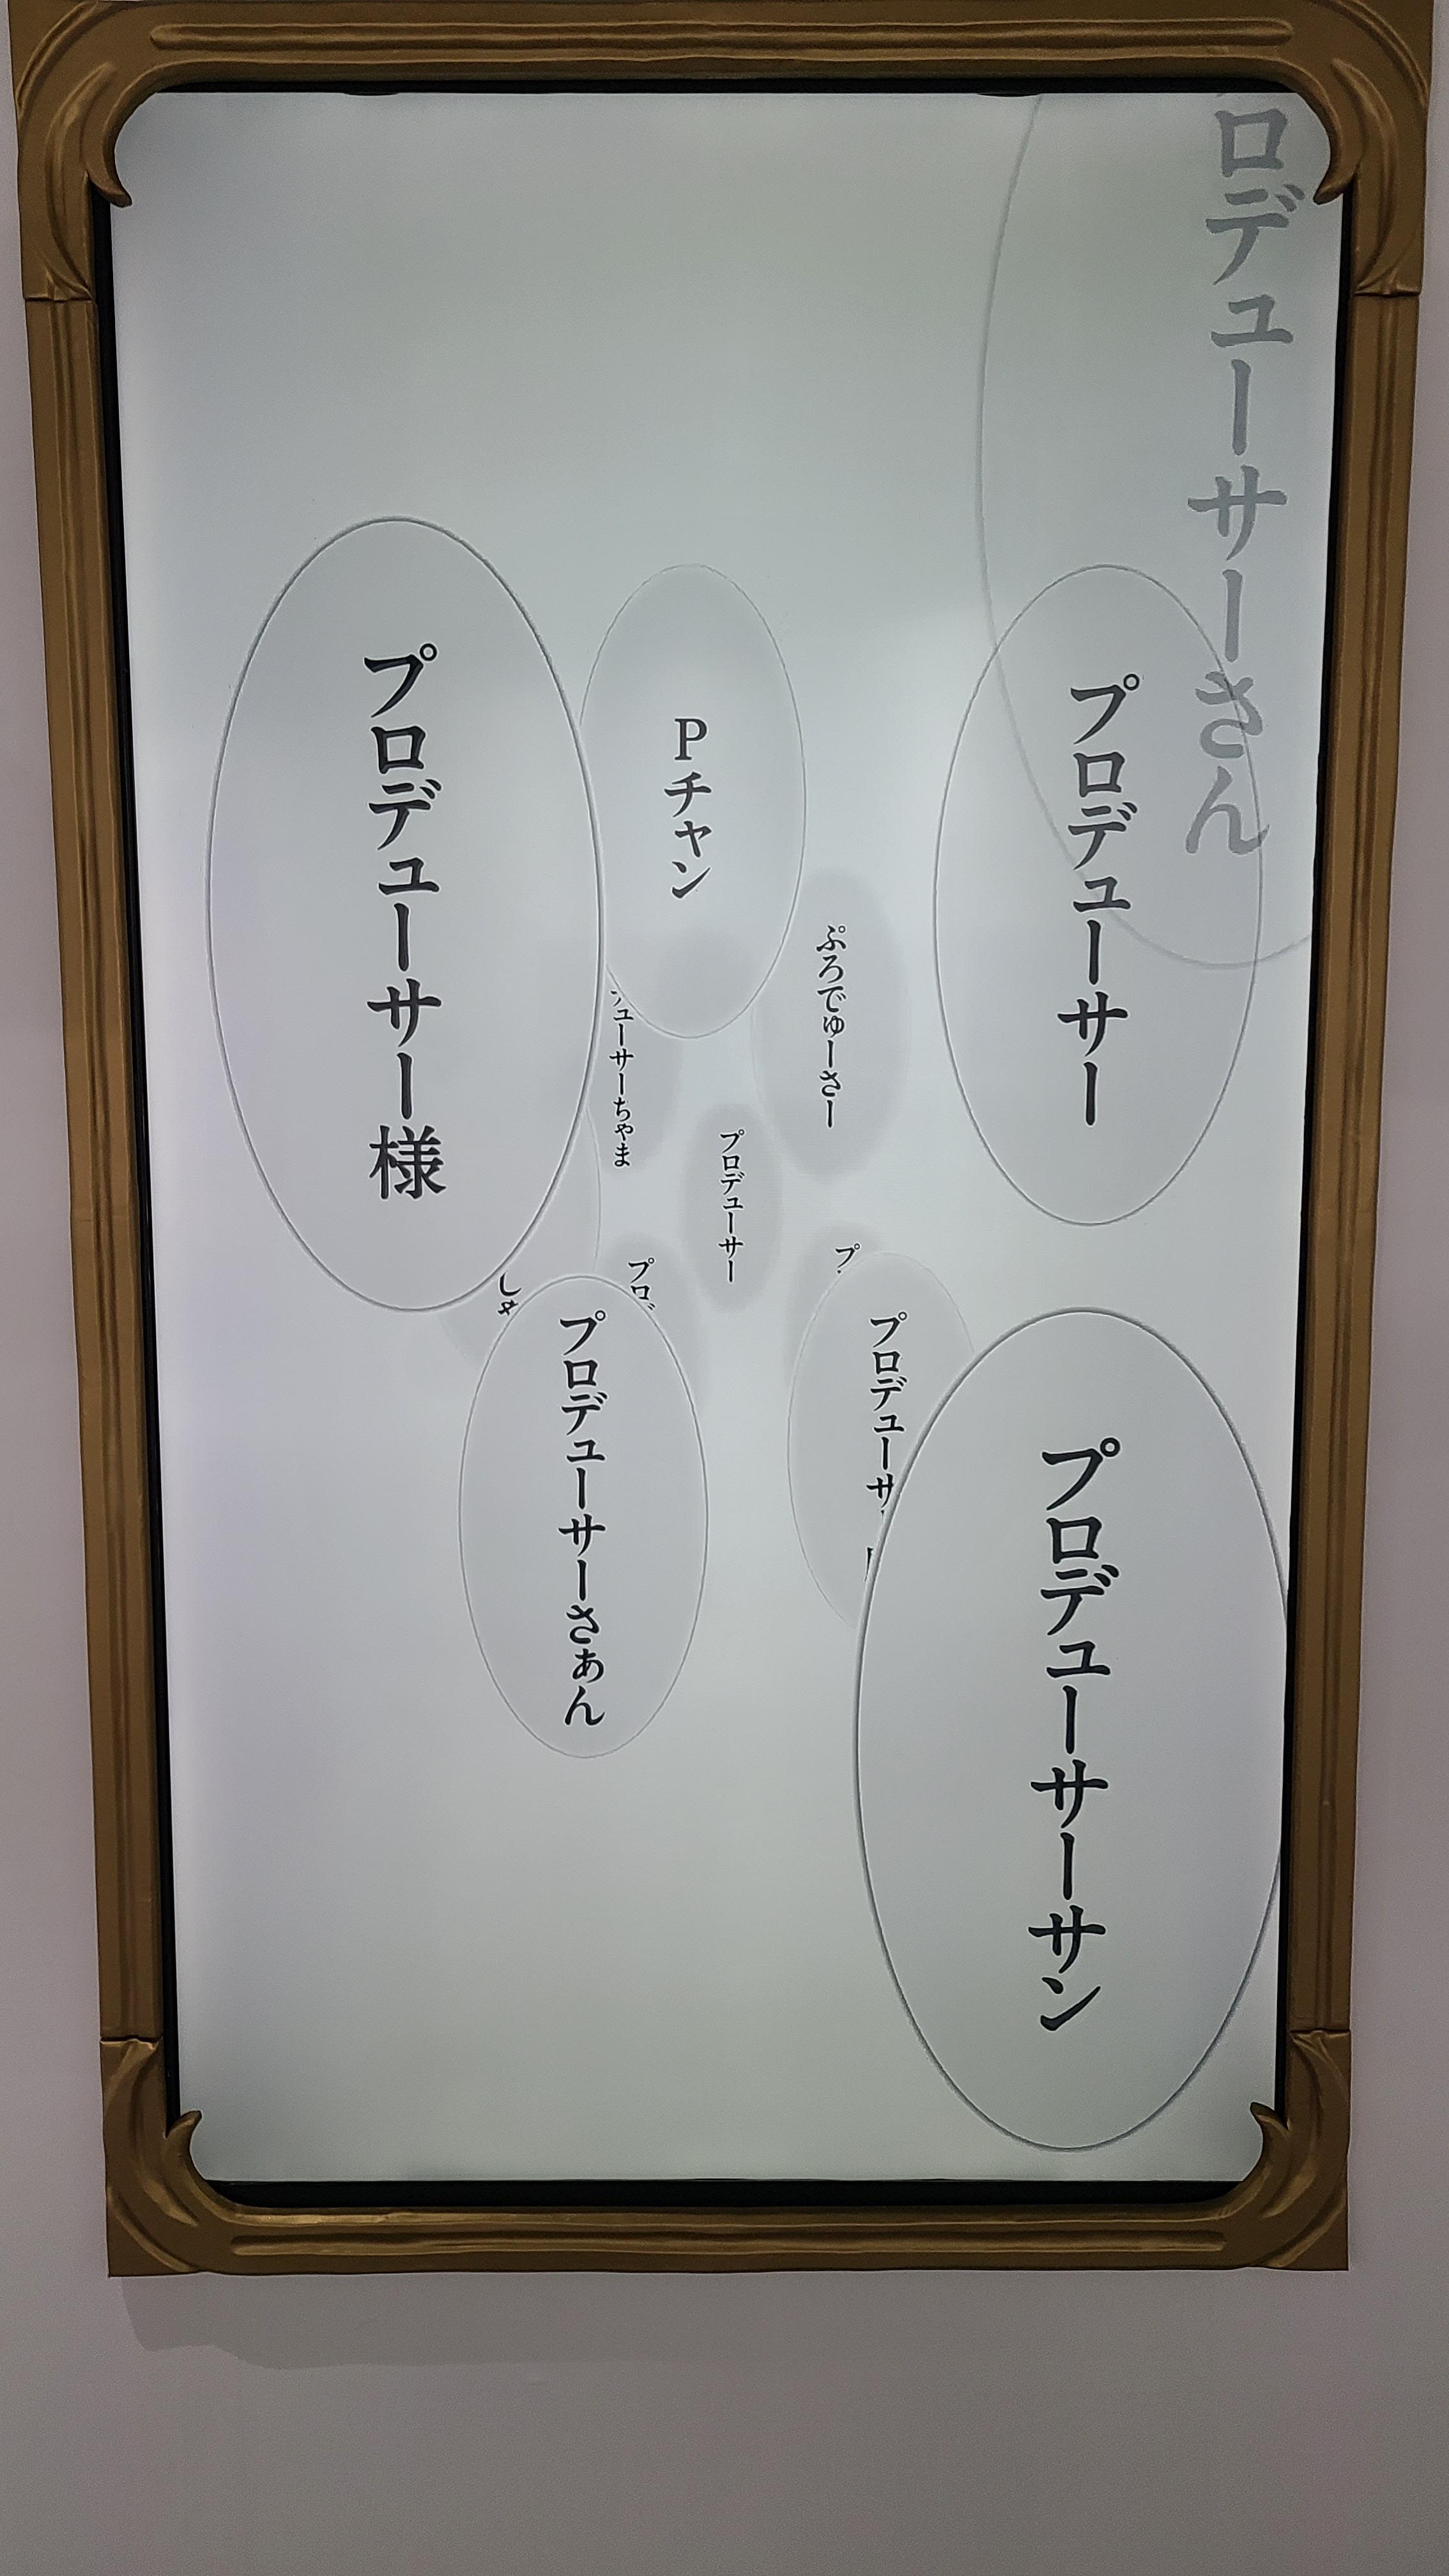 ロデューサーさん
プロデューサー
プロデューサーサン
プロデューサ
ぷろでゅーさー
プ
プロデューサー
Pチャン
プロデ
ューサーちゃま
プロデューサーさぁん
プロデューサー様